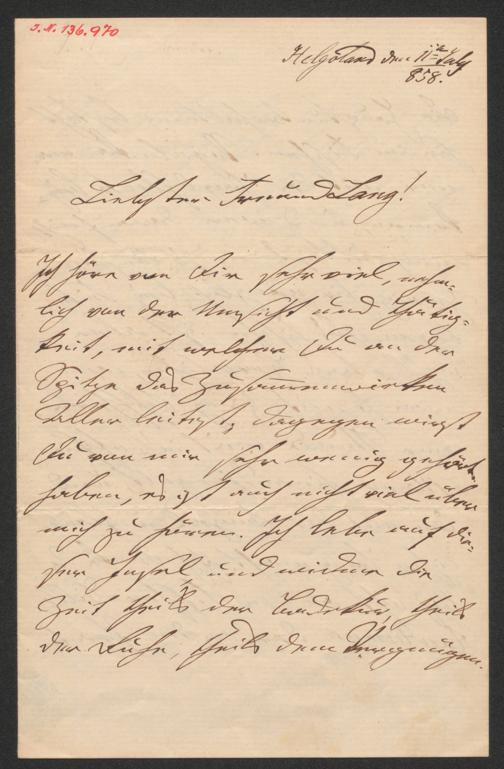 I.N. 136.970
Helgoland den 11ten July
858.
Liebster Freund Lang!
Ich höre von Dir sehr viel, nehm-
lich von der Umsicht und Thätig-
keit, mit welcher Du an der
Spitze das Zusammenwirken
Aller leitest, dagegen wirst
Du von mir sehr wenig gehört
haben, es ist auch nicht viel über
mich zu hören. Ich lebe auf die-
ser Insel, und widme die
Zeit theils der Badekur, theils
der Ruhe, theils dem Vergnügen.